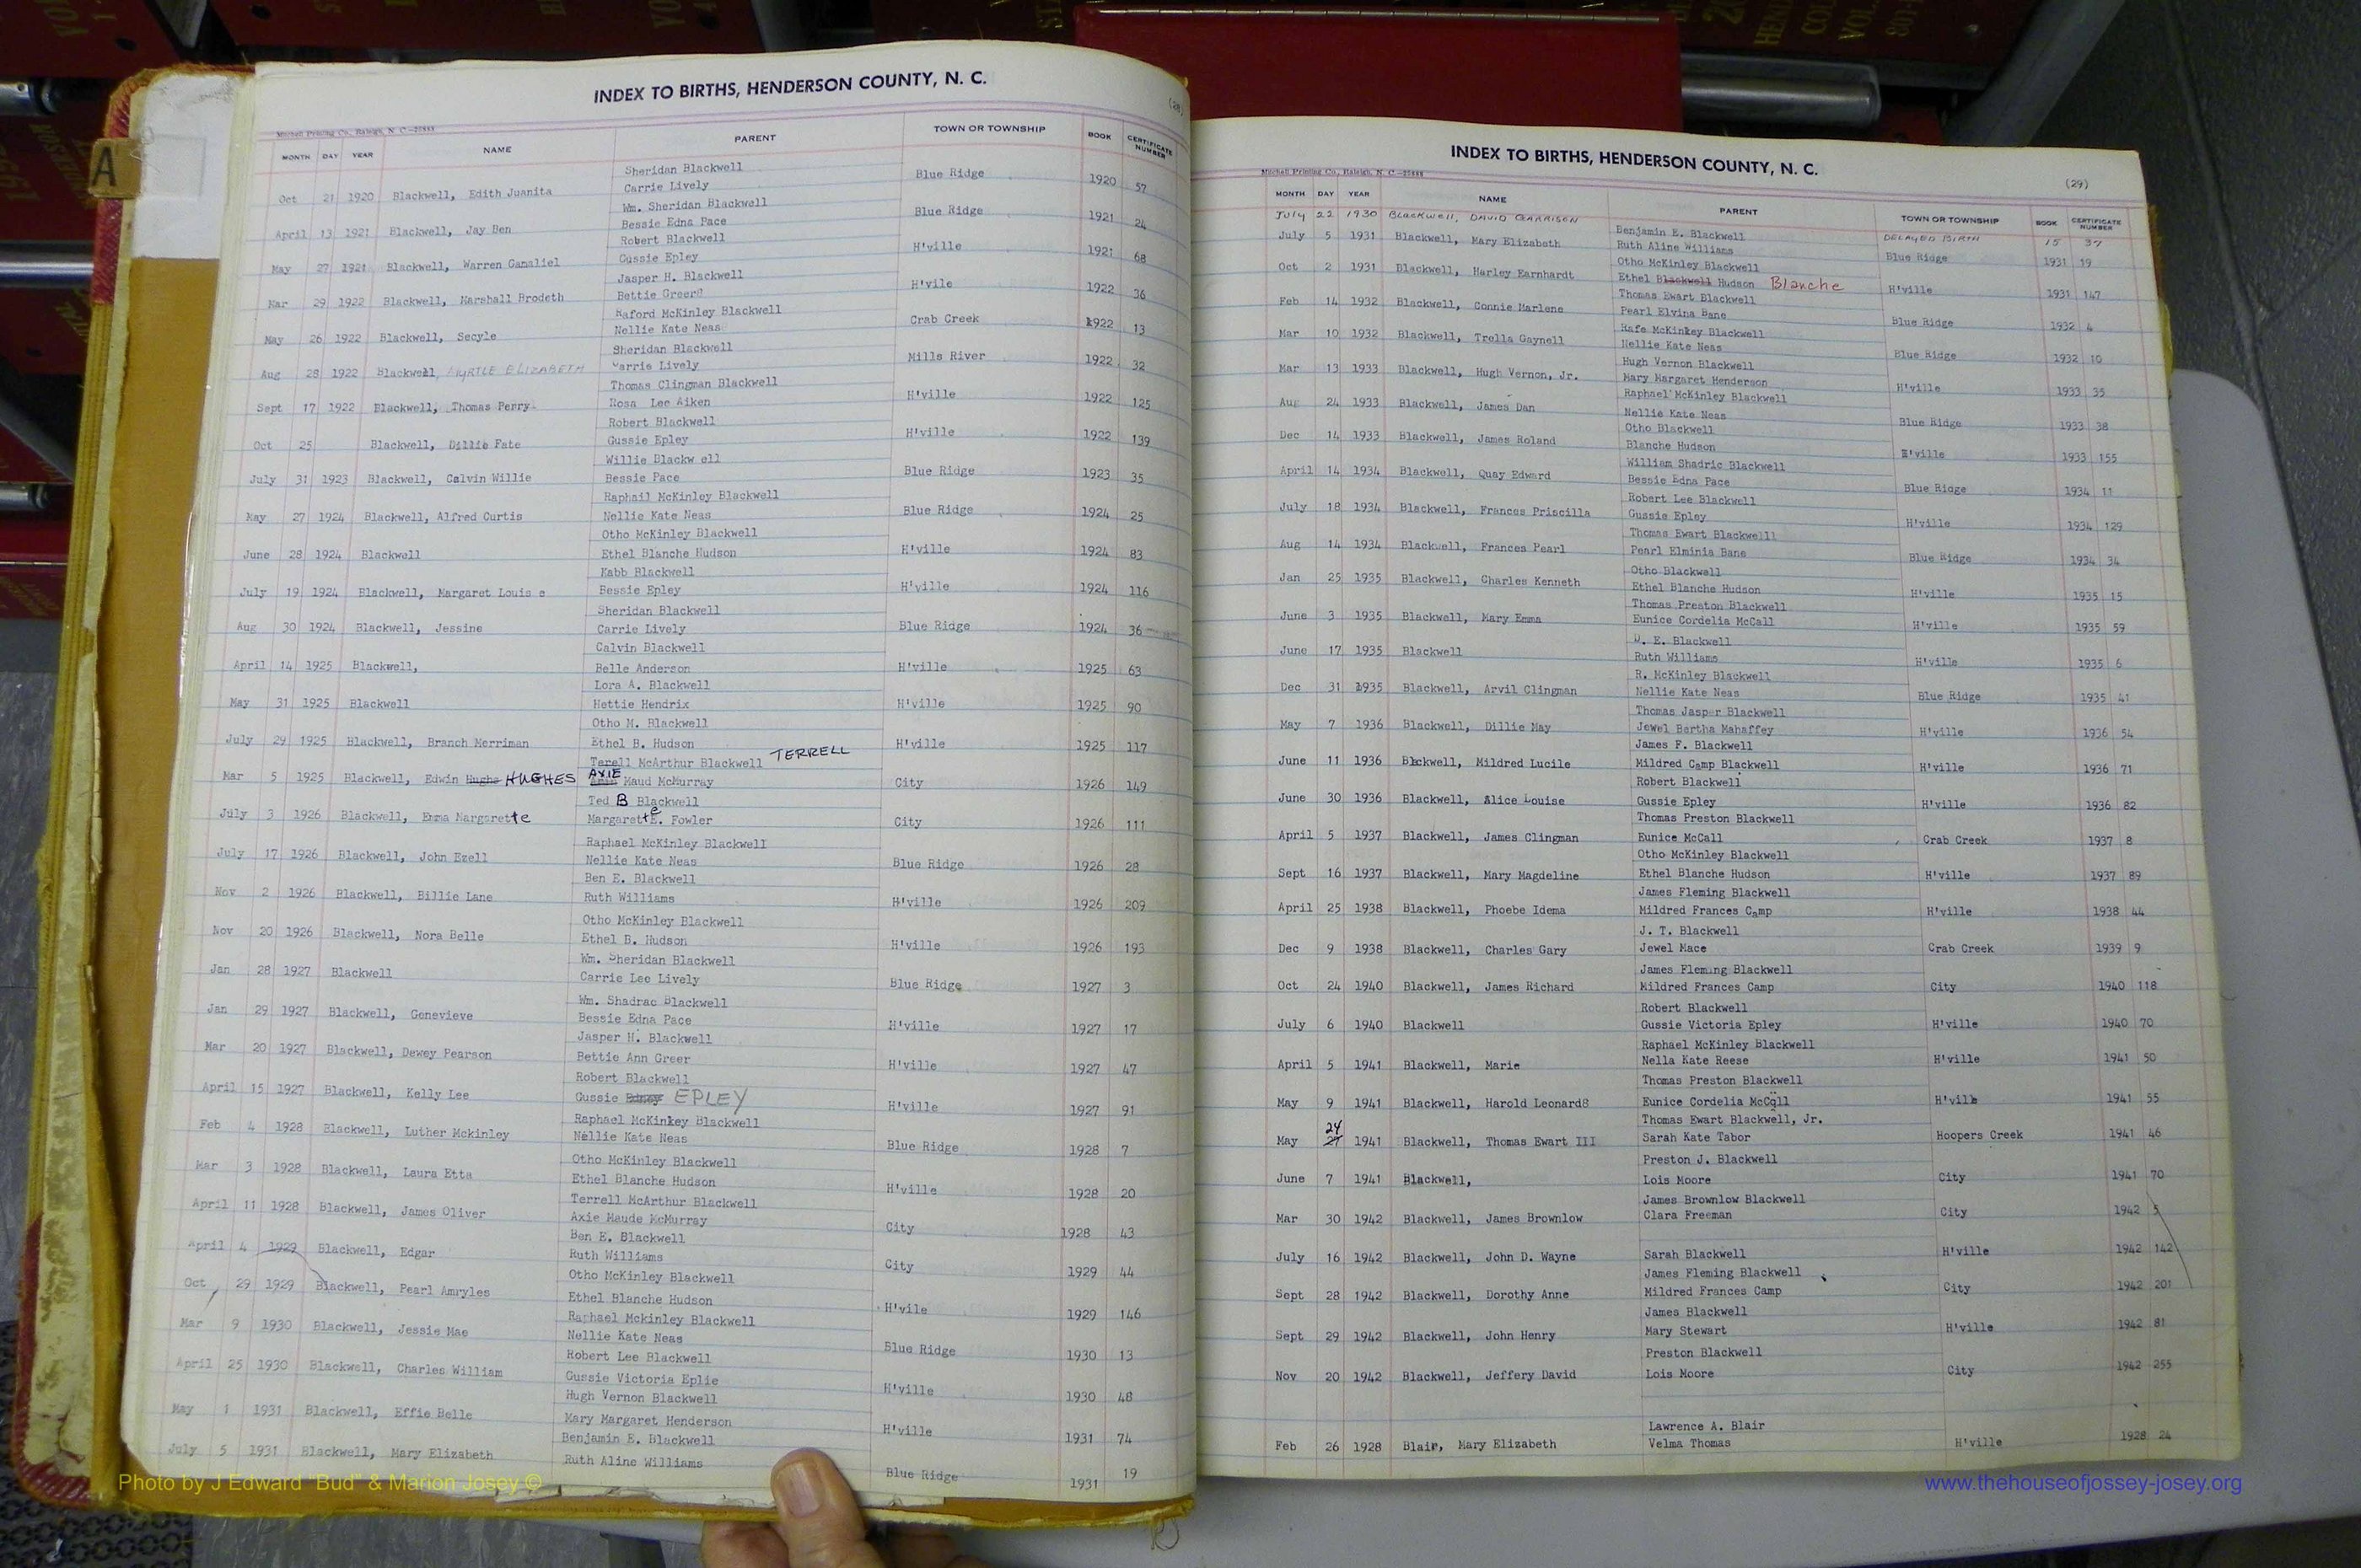 INDEX TO BIRTHS, HENDERSON COUNTY, N. C.
Mitchell Printing Co., Raleigh, N. C.
MONTH DAY YEAR NAME PARENT TOWN OR TOWNSHIP BOOK CERTIFICATE NUMBER
Sheridan Blackwell
Oct 21 1920 Blackwell, Edith Juanita Carrie Lively Blue Ridge 1920 57
Wm. Sheridan Blackwell
April 13 1921 Blackwell, Jay Ben Bessie Edna Pace Blue Ridge 1921 24
Robert Blackwell
May 27 1921 Blackwell, Warren Gamaliel Gussie Epley H'ville 1921 68
Jasper H. Blackwell
Mar 29 1922 Blackwell, Marshall Brodeth Bettie Greer H'vile 1922 36
Raford McKinley Blackwell
May 26 1922 Blackwell, Secyle Nellie Kate Neas Crab Creek 1922 13
Sheridan Blackwell
Aug 28 1922 Blackwell, MYRTLE ELIZABETH Carrie Lively Mills River 1922 32
Thomas Clingman Blackwell
Sept 17 1922 Blackwell, Thomas Perry Rosa Lee Aiken H'ville 1922 125
Robert Blackwell
Oct 25 Blackwell, Dillie Fate Gussie Epley H'ville 1922 139
Willie Blackw ell
July 31 1923 Blackwell, Calvin Willie Bessie Pace Blue Ridge 1923 35
Raphail McKinley Blackwell
May 27 1924 Blackwell, Alfred Curtis Nellie Kate Neas Blue Ridge 1924 25
Otho McKinley Blackwell
June 28 1924 Blackwell Ethel Blanche Hudson H'ville 1924 83
Rabb Blackwell
July 19 1924 Blackwell, Margaret Louis e Bessie Epley H'ville 1924 116
Sheridan Blackwell
Aug 30 1924 Blackwell, Jessine Carrie Lively Blue Ridge 1924 36
Calvin Blackwell
April 14 1925 Blackwell, Belle Anderson H'ville 1925 63
Lora A. Blackwell
May 31 1925 Blackwell Hettie Hendrix H'ville 1925 90
Otho M. Blackwell
July 29 1925 Blackwell, Branch Merriman Ethel B. Hudson H'ville 1925 117
Terell McArthur Blackwell TERRELL
Mar 5 1925 Blackwell, Edwin Hughs HUGHES AXIE Maud McMurray City 1926 149
Ted B Blackwell
July 3 1926 Blackwell, Emma Margarette Margarette E. Fowler City 1926 111
Raphael McKinley Blackwell
July 17 1926 Blackwell, John Ezell Nellie Kate Neas Blue Ridge 1926 28
Ben E. Blackwell
Nov 2 1926 Blackwell, Billie Lane Ruth Williams H'ville 1926 209
Otho McKinley Blackwell
Nov 20 1926 Blackwell, Nora Belle Ethel B. Hudson H'ville 1926 193
Wm. Sheridan Blackwell
Jan 28 1927 Blackwell Carrie Lee Lively Blue Ridge 1927 3
Wm. Shadrac Blackwell
Jan 29 1927 Blackwell, Genevieve Bessie Edna Pace H'ville 1927 17
Jasper H. Blackwell
Mar 20 1927 Blackwell, Dewey Pearson Bettie Ann Greer H'ville 1927 47
Robert Blackwell
April 15 1927 Blackwell, Kelly Lee Gussie EPLEY H'ville 1927 91
Raphael McKinkey Blackwell
Feb 4 1928 Blackwell, Luther Mckinley Nellie Kate Neas Blue Ridge 1928 7
Otho McKinley Blackwell
Mar 3 1928 Blackwell, Laura Etta Ethel Blanche Hudson H'ville 1928 20
Terrell McArthur Blackwell
April 11 1928 Blackwell, James Oliver Axie Maude McMurray City 1928 43
Ben E. Blackwell
April 4 1929 Blackwell, Edgar Ruth Williams City 1929 44
Otho McKinley Blackwell
Oct 29 1929 Blackwell, Pearl Amryles Ethel Blanche Hudson H'vile 1929 146
Raphael Mckinley Blackwell
Mar 9 1930 Blackwell, Jessie Mae Nellie Kate Neas Blue Ridge 1930 13
Robert Lee Blackwell
April 25 1930 Blackwell, Charles William Gussie Victoria Eplie H'ville 1930 48
Hugh Vernon Blackwell
May 1 1931 Blackwell, Effie Belle Mary Margaret Henderson H'ville 1931 74
Benjamin E. Blackwell
July 5 1931 Blackwell, Mary Elizabeth Ruth Aline Williams Blue Ridge 1931 19
INDEX TO BIRTHS, HENDERSON COUNTY, N. C.
(29)
Mitchell Printing Co., Raleigh, N. C.
MONTH DAY YEAR NAME PARENT TOWN OR TOWNSHIP BOOK CERTIFICATE NUMBER
July 22 1930 Blackwell, DAVID GARRISON DELAYED BIRTH 15 37
Benjamin E. Blackwell
July 5 1931 Blackwell, Mary Elizabeth Ruth Aline Williams Blue Ridge 1931 19
Otho McKinley Blackwell
Oct 2 1931 Blackwell, Harley Earnhardt Ethel Blackwell Hudson Blanche H'ville 1931 147
Thomas Ewart Blackwell
Feb 14 1932 Blackwell, Connie Marlene Pearl Elvina Bane Blue Ridge 1932 4
Rafe McKinkey Blackwell
Mar 10 1932 Blackwell, Trella Gaynell Nellie Kate Neas Blue Ridge 1932 10
Hugh Vernon Blackwell
Mar 13 1933 Blackwell, Hugh Vernon, Jr. Mary Margaret Henderson H'ville 1933 35
Raphael McKinley Blackwell
Aug 24 1933 Blackwell, James Dan Nellie Kate Neas Blue Ridge 1933 38
Otho Blackwell
Dec 14 1933 Blackwell, James Roland Blanche Hudson H'ville 1933 155
William Shadric Blackwell
April 14 1934 Blackwell, Quay Edward Bessie Edna Pace Blue Ridge 1934 11
Robert Lee Blackwell
July 18 1934 Blackwell, Frances Priscilla Gussie Epley H'ville 1934 129
Thomas Ewart Blackwelll
Aug 14 1934 Blackwell, Frances Pearl Pearl Elminia Bane Blue Ridge 1934 34
Otho Blackwell
Jan 25 1935 Blackwell, Charles Kenneth Ethel Blanche Hudson H'ville 1935 15
Thomas Preston Blackwell
June 3 1935 Blackwell, Mary Emma Eunice Cordelia McCall H'ville 1935 59
E. Blackwell
June 17 1935 Blackwell Ruth Williams H'ville 1935 6
R. McKinley Blackwell
Dec 31 1935 Blackwell, Arvil Clingman Nellie Kate Neas Blue Ridge 1935 41
Thomas Jasper Blackwell
May 7 1936 Blackwell, Dillie May Jewel Bertha Mahaffey H'ville 1936 54
James F. Blackwell
June 11 1936 Blckwell, Mildred Lucile Mildred Camp Blackwell H'ville 1936 71
Robert Blackwell
June 30 1936 Blackwell, Alice Louise Gussie Epley H'ville 1936 82
Thomas Preston Blackwell
April 5 1937 Blackwell, James Clingman Eunice McCall Crab Creek 1937 8
Otho McKinley Blackwell
Sept 16 1937 Blackwell, Mary Magdeline Ethel Blanche Hudson H'ville 1937 89
James Fleming Blackwell
April 25 1938 Blackwell, Phoebe Idema Mildred Frances Camp H'ville 1938 44
J. T. Blackwell
Dec 9 1938 Blackwell, Charles Gary Jewel Mace Crab Creek 1939 9
James Fleming Blackwell
Oct 24 1940 Blackwell, James Richard Mildred Frances Camp City 1940 118
Robert Blackwell
July 6 1940 Blackwell Gussie Victoria Epley H'ville 1940 70
Raphael McKinley Blackwell
April 5 1941 Blackwell, Marie Nella Kate Reese H'ville 1941 50
Thomas Preston Blackwell
May 9 1941 Blackwell, Harold Leonard8 Eunice Cordelia McCall H'ville 1941 55
Thomas Ewart Blackwell, Jr.
May 27 24 1941 Blackwell, Thomas Ewart III Sarah Kate Tabor Hoopers Creek 1941 46
Preston J. Blackwell
June 7 1941 Blackwell, Lois Moore City 1941 70
James Brownlow Blackwell
Mar 30 1942 Blackwell, James Brownlow Clara Freeman City 1942 5
July 16 1942 Blackwell, John D. Wayne Sarah Blackwell H'ville 1942 142
James Fleming Blackwell
Sept 28 1942 Blackwell, Dorothy Anne Mildred Frances Camp City 1942 201
James Blackwell
Sept 29 1942 Blackwell, John Henry Mary Stewart H'ville 1942 81
Preston Blackwell
Nov 20 1942 Blackwell, Jeffery David Lois Moore City 1942 255
Lawrence A. Blair
Feb 26 1928 Blair, Mary Elizabeth Velma Thomas H'ville 1928 24
Photo by J Edward "Bud" & Marion Josey ©
www.thehouseofjossey-josey.org